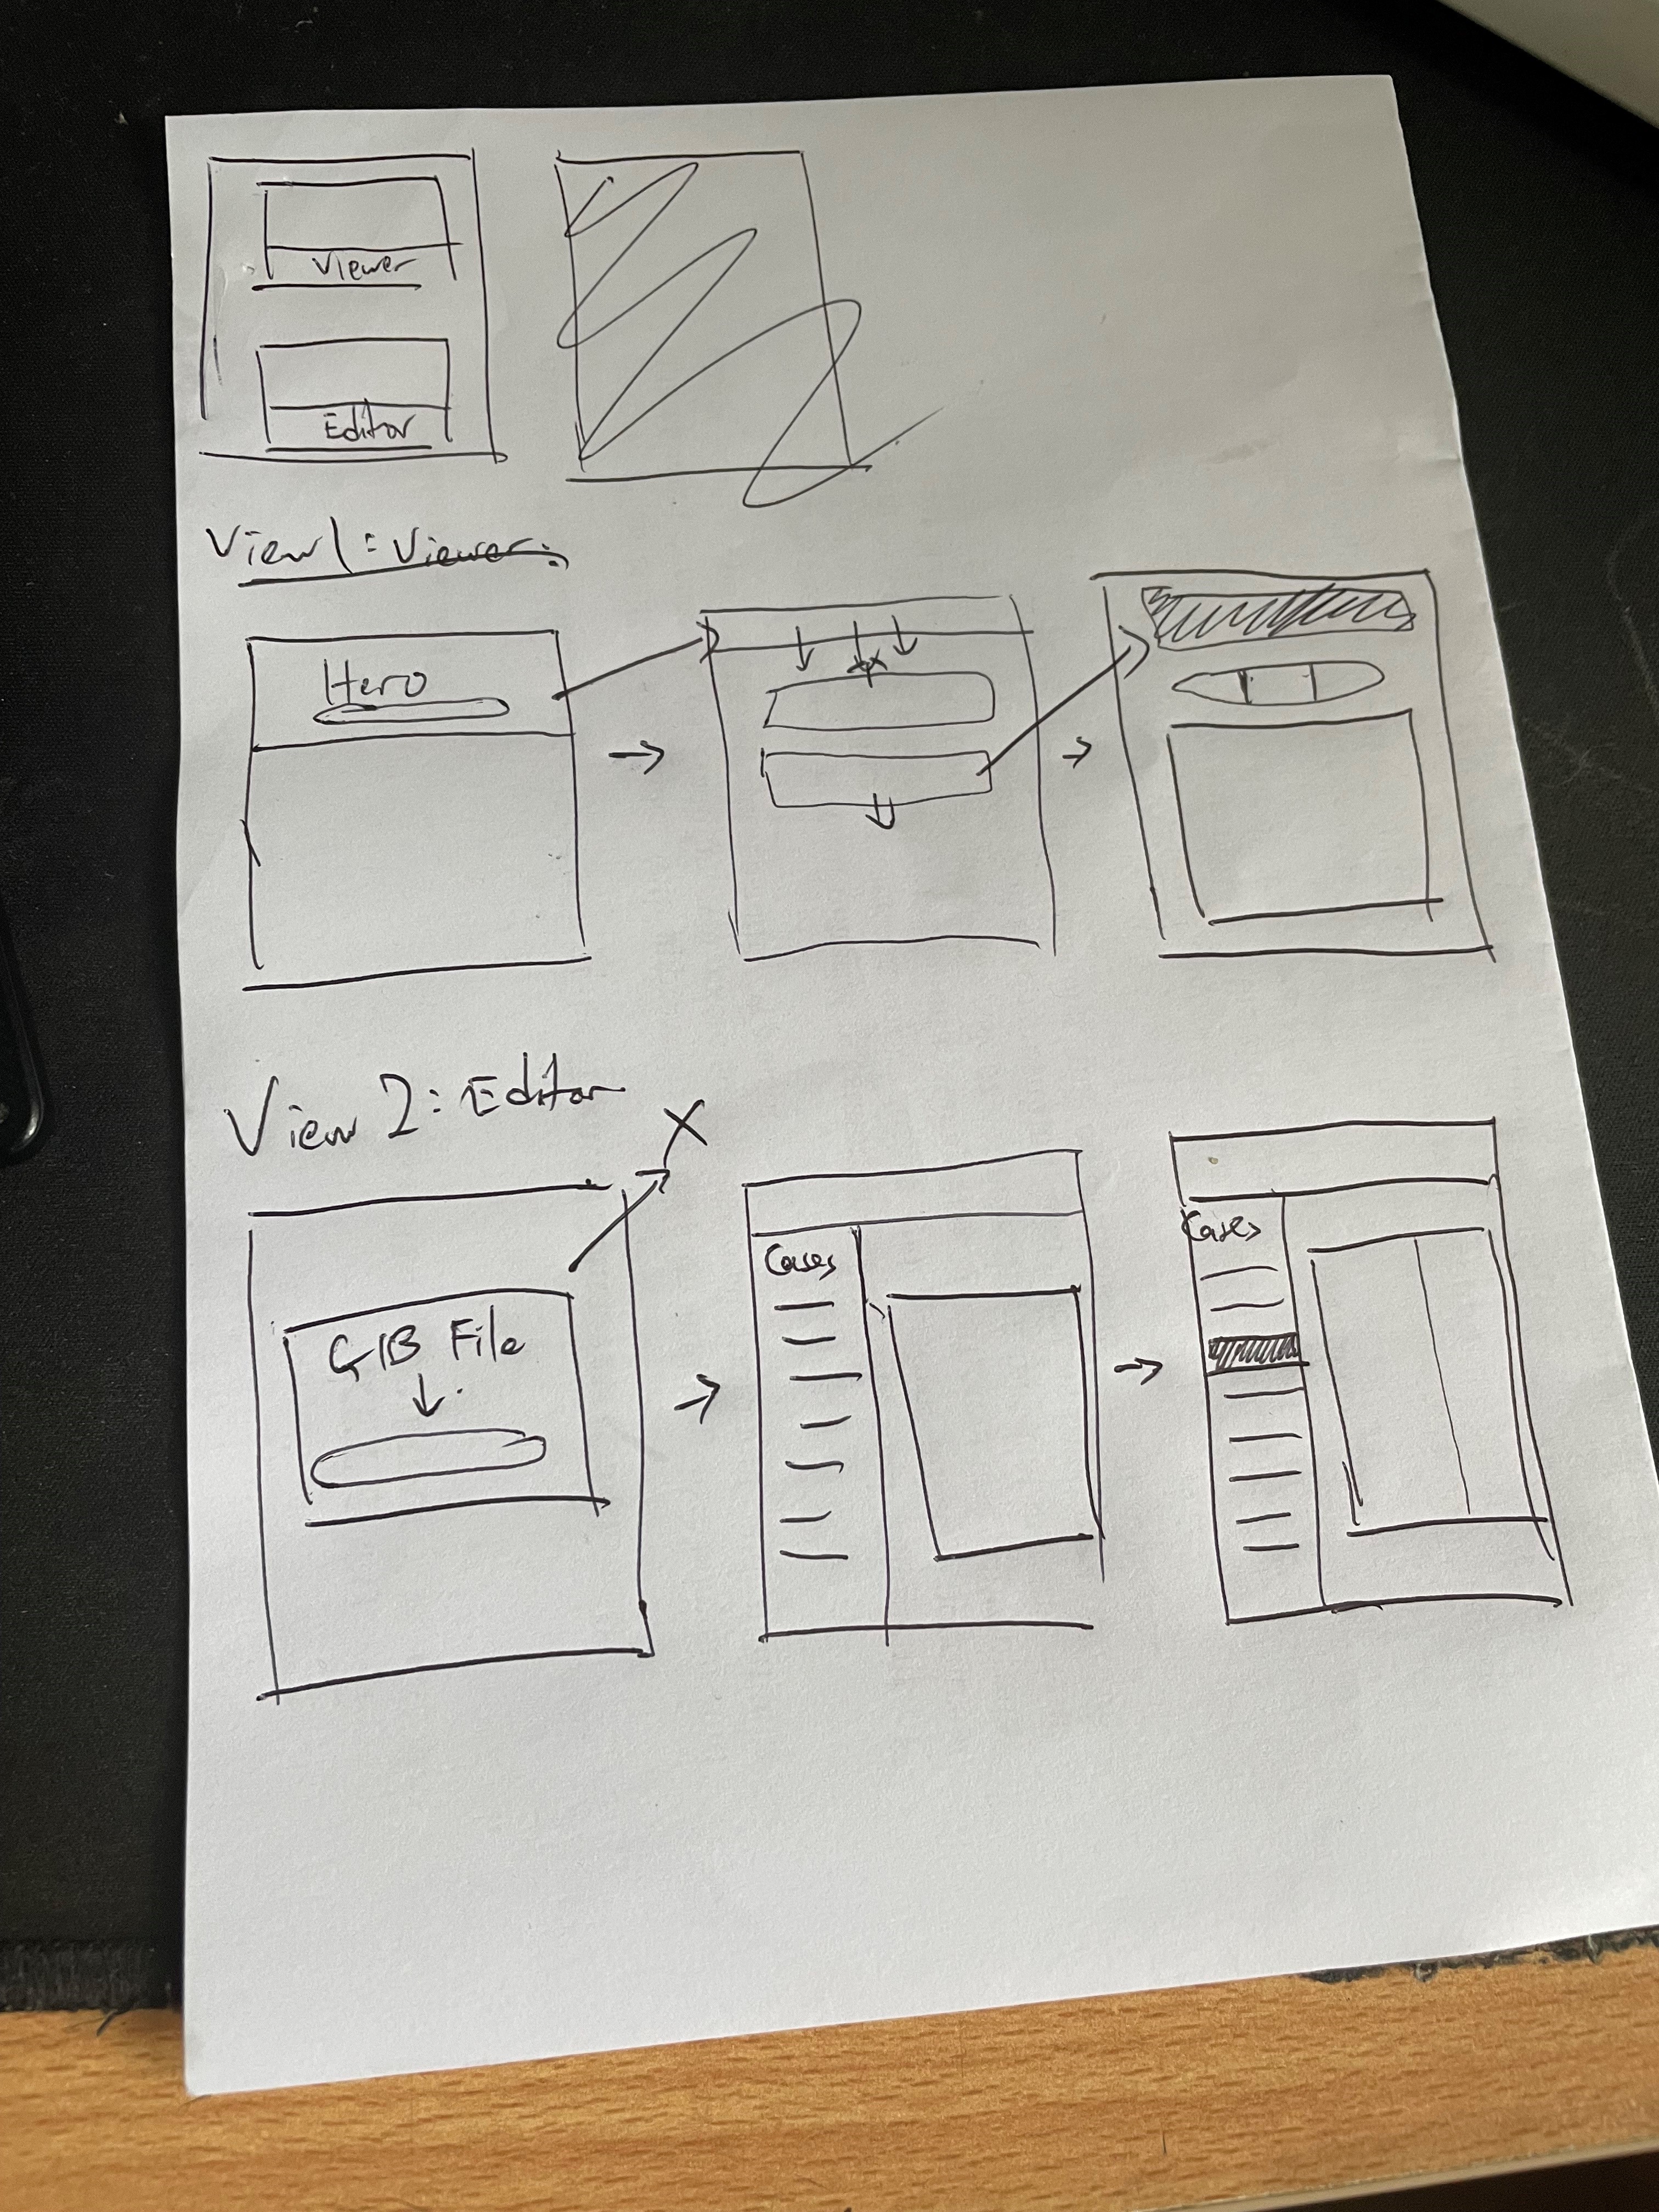 Viewer
Editor
View 1: Viewer:
Hero
View 2: Editor
X
GIB File
Cases
Cases